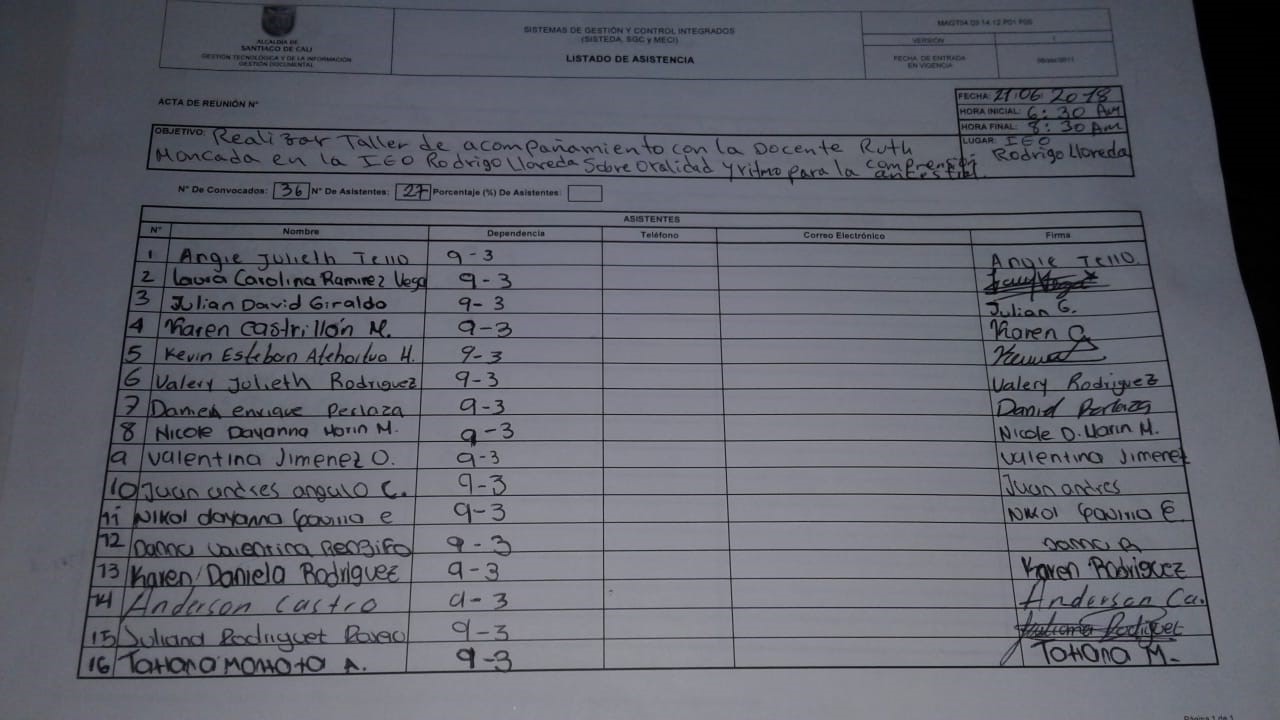 ALCALDÍA DE
SANTIAGO DE CALI
GESTIÓN TECNOLÓGICA Y DE LA INFORMACIÓN
GESTIÓN DOCUMENTAL
SISTEMAS DE GESTIÓN Y CONTROL INTEGRADOS
(SISTEDA, SGC y MECI)
LISTADO DE ASISTENCIA
VERSIÓN 1
FECHA DE ENTRADA
EN VIGENCIA
ACTA DE REUNIÓN N°
FECHA: 21:06:2018
HORA INICIAL: 6:30 Am
HORA FINAL: 8:30 Am
LUGAR: IEO
Rodrigo Lloreda
OBJETIVO: Realizar Taller de acompañamiento con la Docente Ruth
Moncada en la IEO Rodrigo Lloreda Sobre Oralidad y ritmo para la
N° De Convocados: 36 N° De Asistentes: 27 Porcentaje (%) De Asistentes:
ASISTENTES
N° Nombre Dependencia Teléfono Correo Electrónico Firma
1 Angie Julieth Tello 9-3 Angie Tello.
2 Laura Carolina Ramirez Vega 9-3
3 Julian David Giraldo 9-3 Julian G.
4 Karen Castrillón M. 9-3 Karen C
5 Kevin Esteban Atehortua H. 9-3
6 Valery Julieth Rodriguez 9-3 Valery Rodriguez
7 enrique Perlaza 9-3 Daniel Perlaza
8 Nicole Dayanna Marin M. 9-3 Nicole D. Marin M.
9 Valentina Jimenez O. 9-3 Valentina Jimenez
10 Juan andres angulo C. 9-3 Juan andres
11 Nikol dayanna Gaviria e 9-3 Nikol Gaviria E.
12 Valentina Rengifo 9-3
13 Karen Daniela Rodriguez 9-3 Karen Rodriguez
14 Anderson Castro 9-3 Anderson Ca.
15 Juliana Rodriguez 9-3 Juliana Rodriguez
16 Tatiana Montoya A. 9-3 Tatiana M.
Página 1 de 1